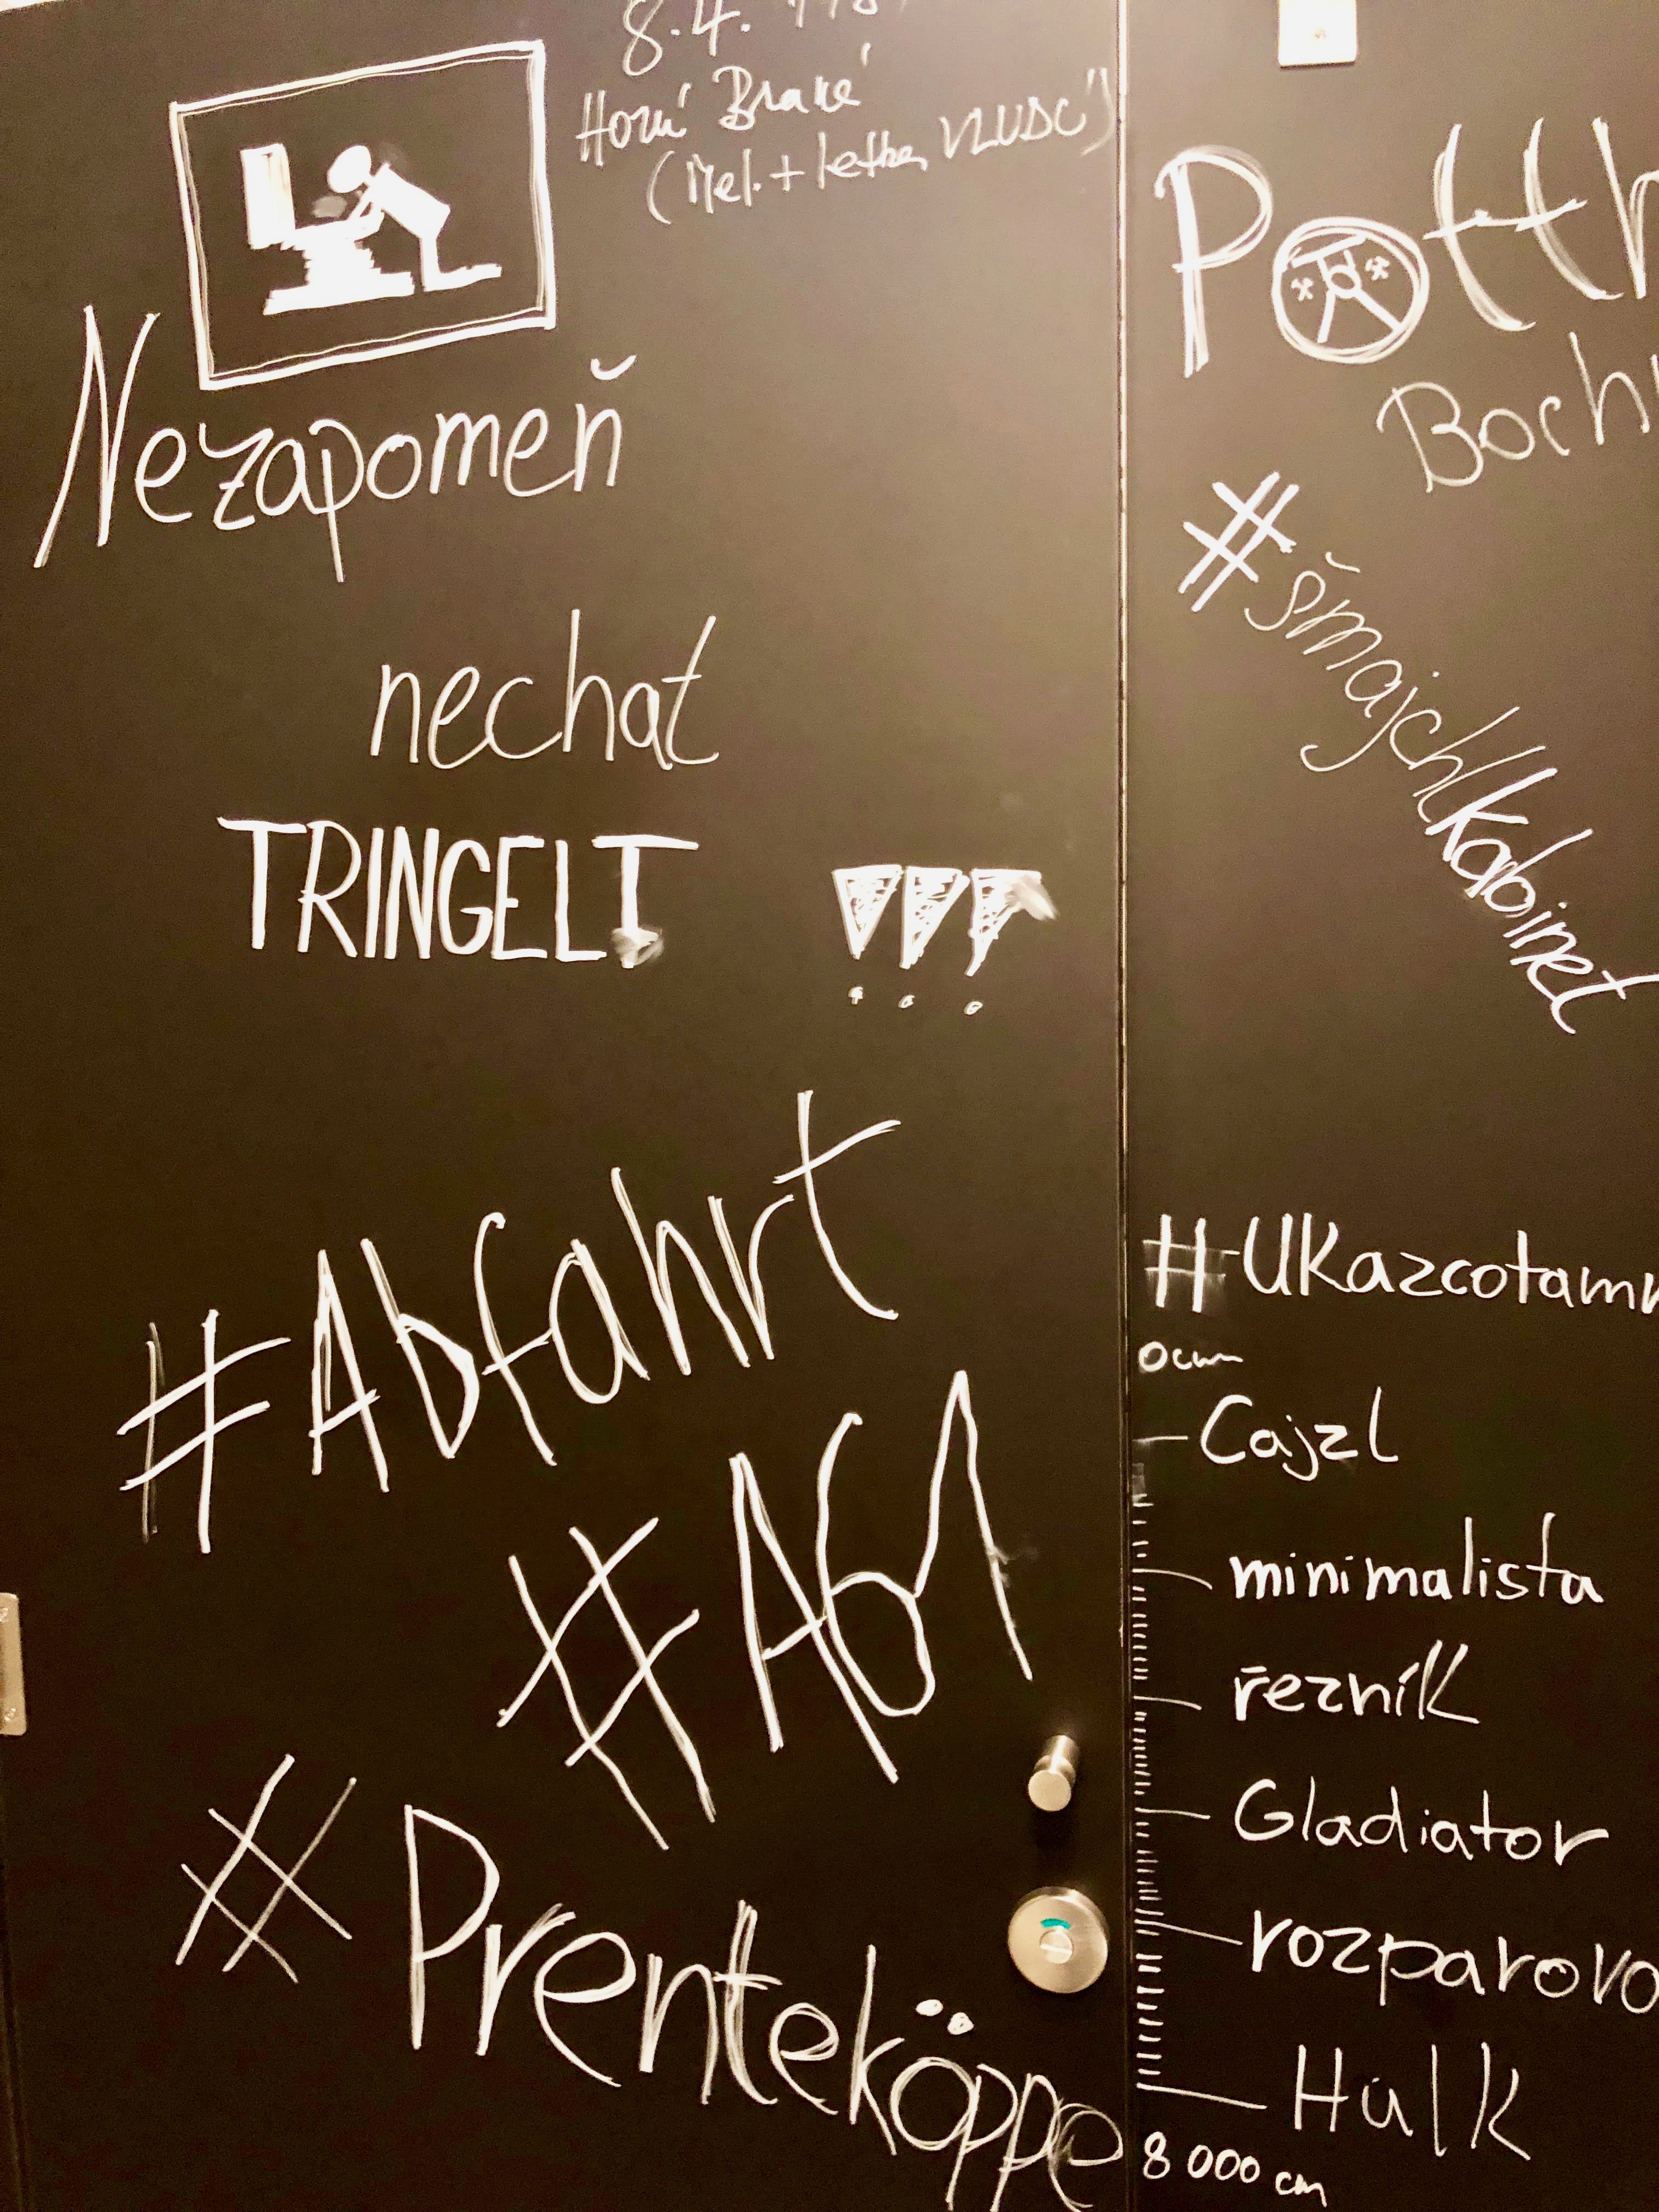 8.4.
Horní
Nezapomeň
nechat
TRINGELT !!!
#Abfahrt
#A61
#Prenteköppe
Potth
Boch
#šmajchlkabinet
#Ukazcotam
0cm
Cajzl
minimalista
řezník
Gladiator
rozparovo
Hulk
8 000 cm